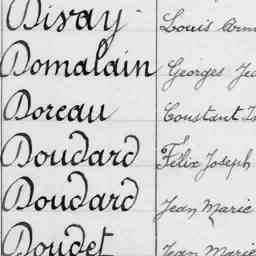 Divay Louis
Domalain Georges
Doreau Constant
Doudard Félix Joseph
Doudard Jean Marie
Doudet Jean Marie